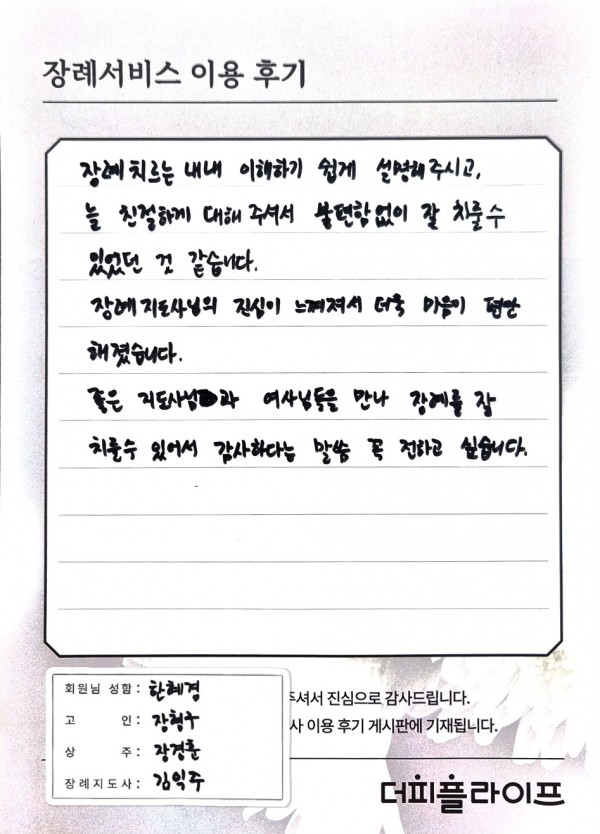 장례서비스 이용 후기
장례 치르는 내내 이해하기 쉽게 설명해 주시고,
늘 친절하게 대해 주셔서 불편함없이 잘 치룰 수
있었던 것 같습니다.
장례지도사님의 진심이 느껴져서 더욱 마음이 편안
해졌습니다.
좋은 지도사님과 여사님들을 만나 장례를 잘
치룰수 있어서 감사하다는 말씀 꼭 전하고 싶습니다.
회원님 성함 : 한혜경
고 인 : 장형구
상 주 : 장경훈
장례지도사 : 김익주
주셔서 진심으로 감사드립니다.
사 이용 후기 게시판에 기재됩니다.
더피플라이프